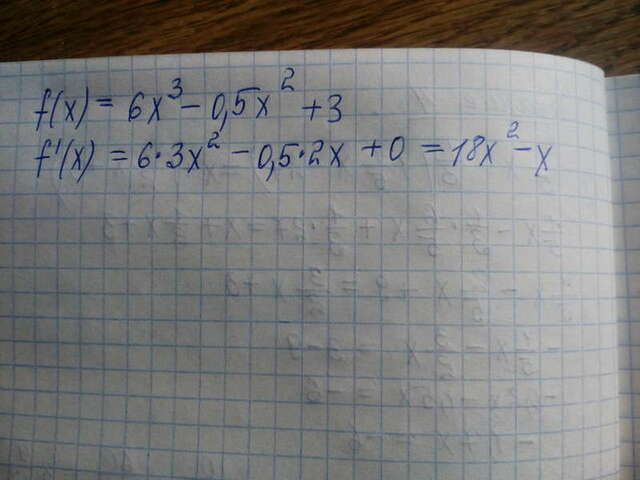 f(x) = 6x³ - 0,5x² + 3
f'(x) = 6·3x² - 0,5·2x + 0 = 18x² - x